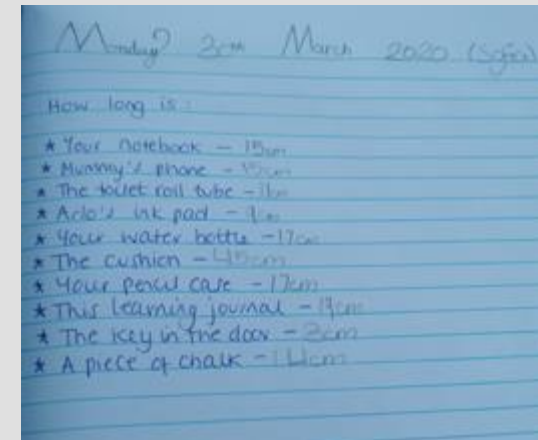 Monday? March 2020 (Sofia)
How long is:
* Your notebook - 15cm
* Mummy's phone - 15cm
* The toilet roll tube -
* Arlo's ink pad -
* Your water bottle - 17cm
* The cushion - 45cm
* Your pencil case - 17cm
* This learning journal -
* The key in the door -
* A piece of chalk -